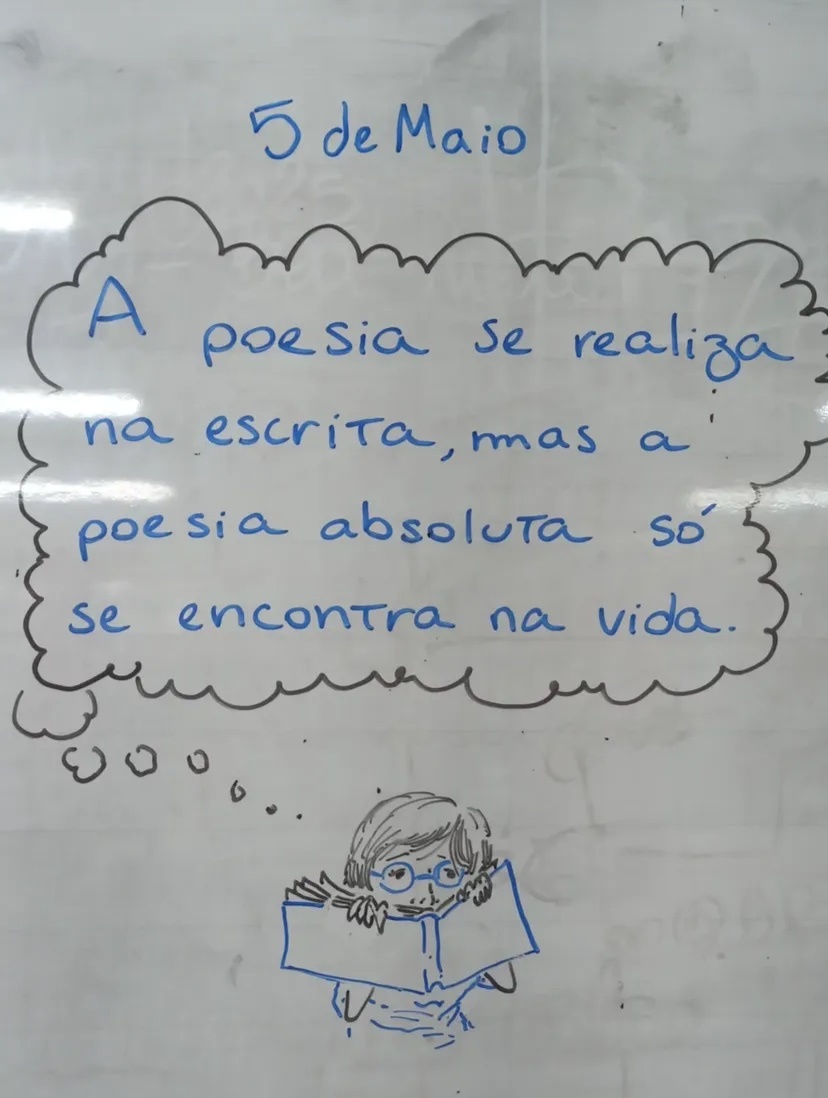 5 de Maio
A poesia se realiza
na escrita, mas a
poesia absoluta só
se encontra na vida.